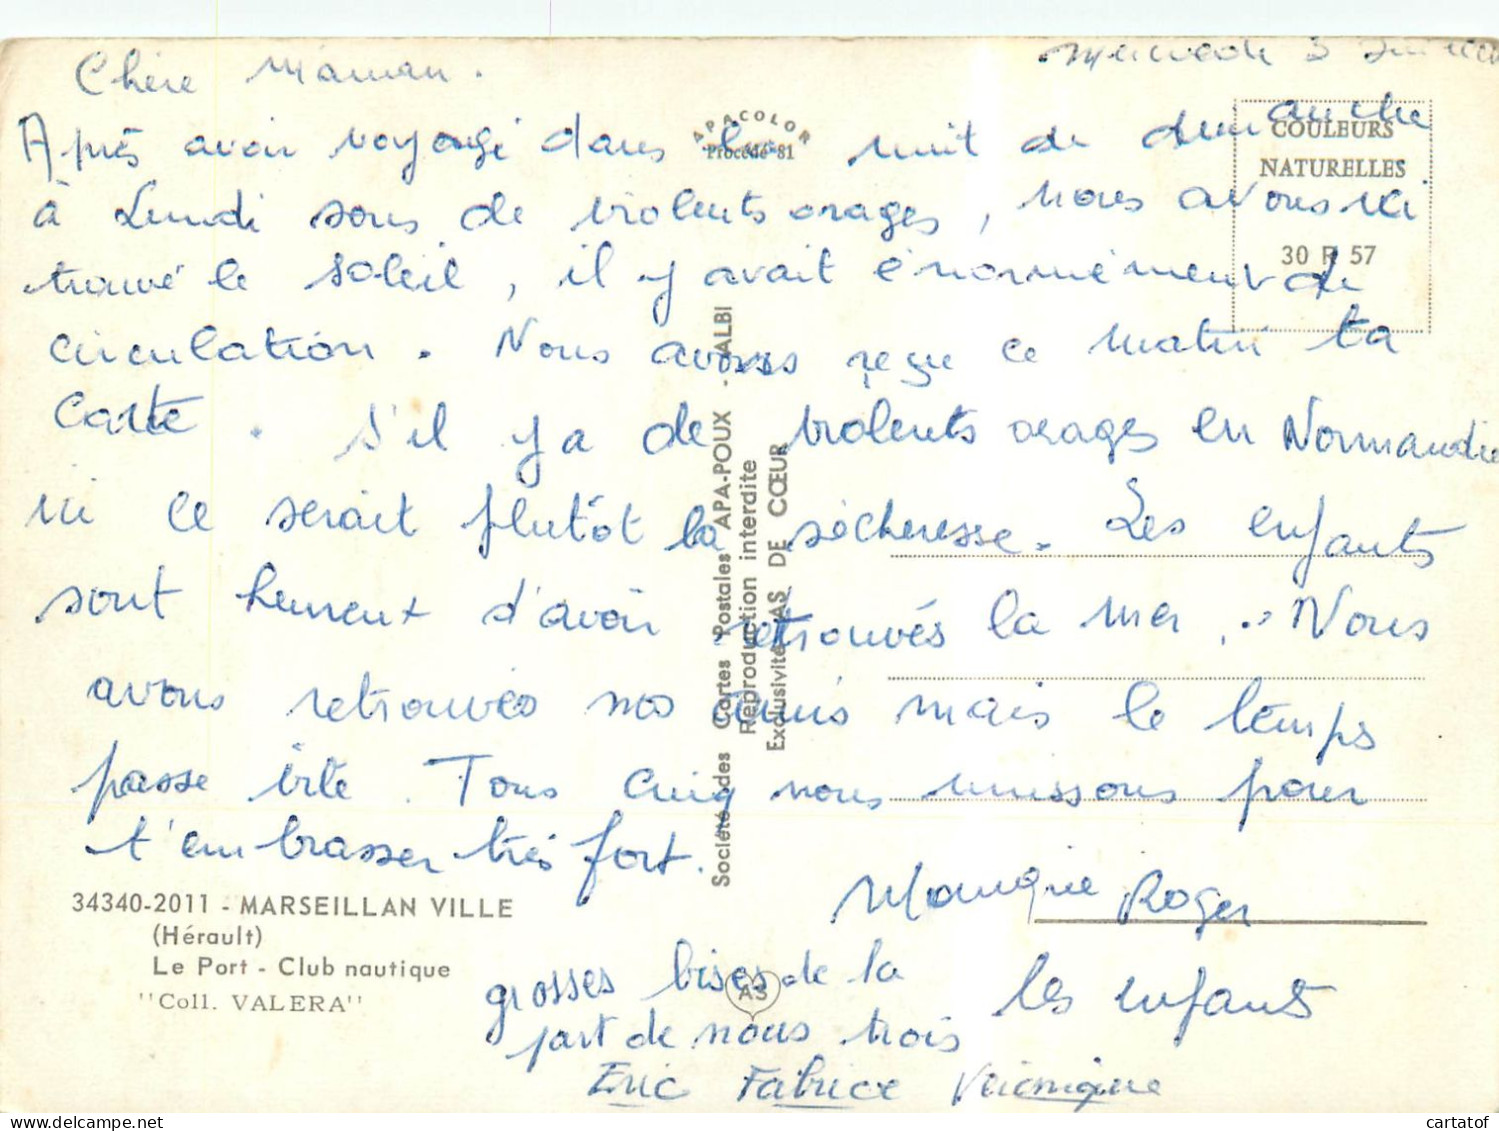 Mercredi 3 Juillet
Chère Maman.
Après avoir voyagé dans la nuit de dimanche
à Lundi sous de violents orages, nous avons ici
trouvé le soleil, il y avait énormément de
circulation. Nous avons reçu ce matin ta
carte. S'il y a de violents orages en Normandie
ici ce serait plutôt la sécheresse. Les enfants
sont heureux d'avoir retrouvés la mer. Nous
avons retrouvés nos amis mais le temps
passe vite. Tous cinq nous unissons pour
t'embrasser très fort.
Monique Roger
les enfants
grosses bises de la
part de nous trois
Eric Fabrice Véronique
APACOLOR
Procédé 81
COULEURS
NATURELLES
30 R 57
Société des Cartes Postales APA-POUX - ALBI
Reproduction interdite
Exclusivité AS DE CŒUR
34340-2011 - MARSEILLAN VILLE
(Hérault)
Le Port - Club nautique
"Coll. VALERA"
AS
cartatof